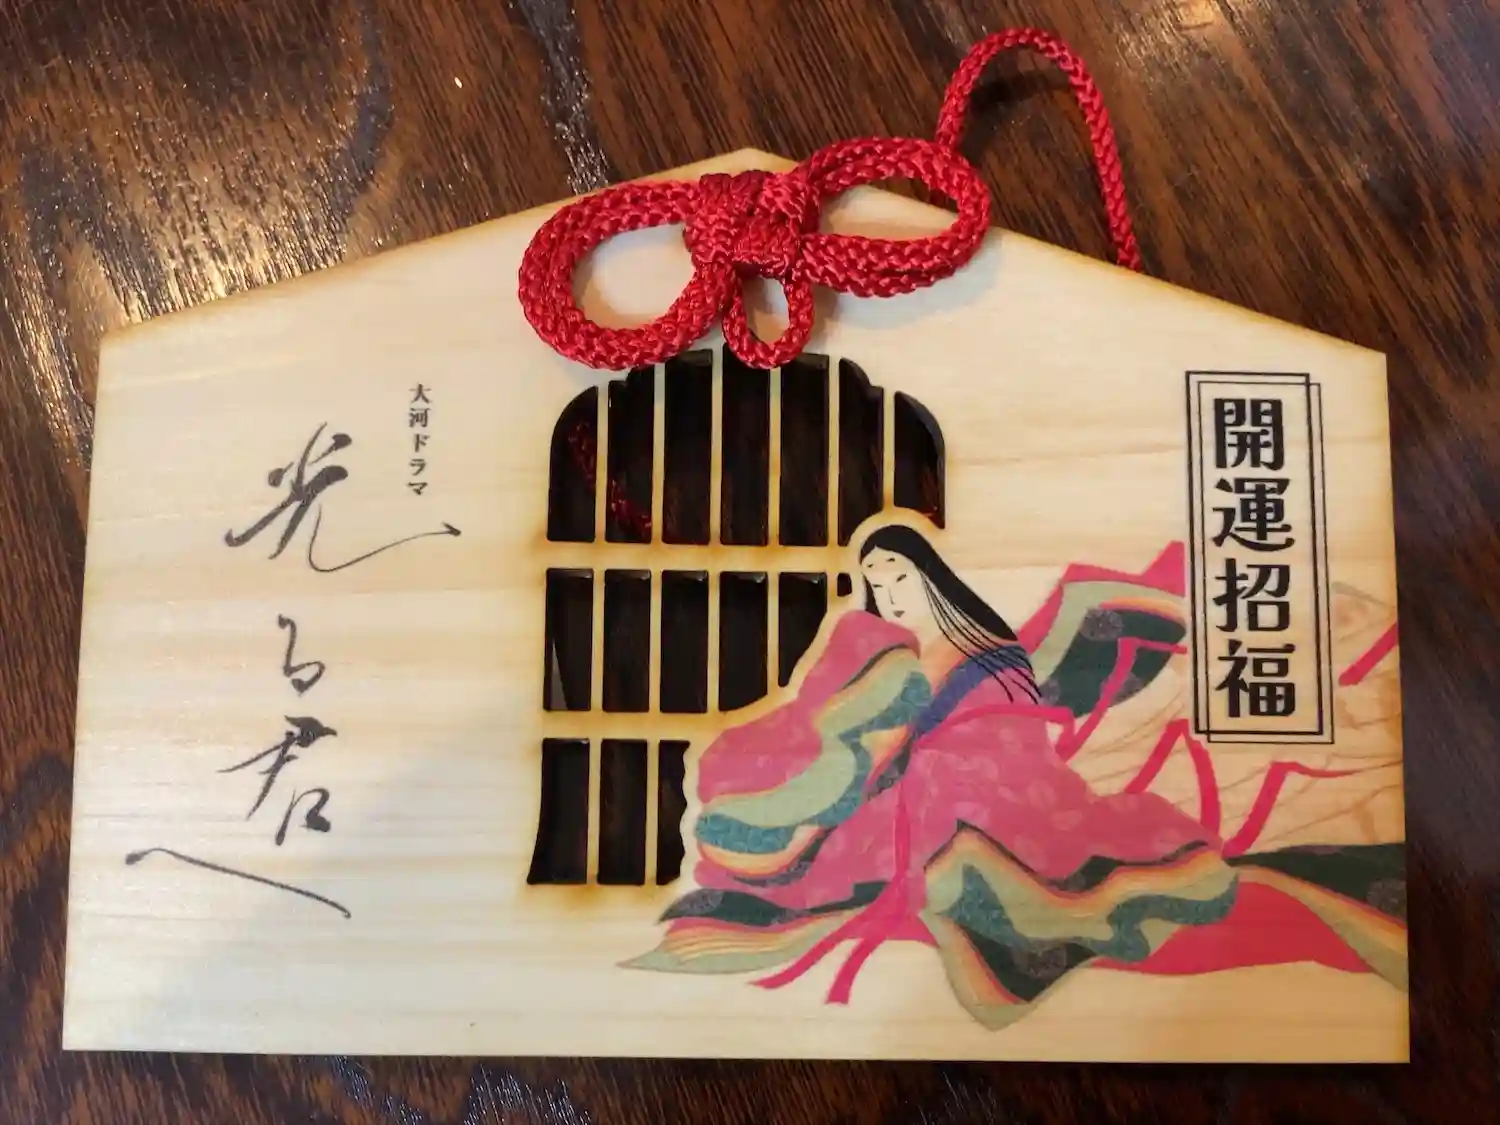 開運招福
大河ドラマ
光る君へ